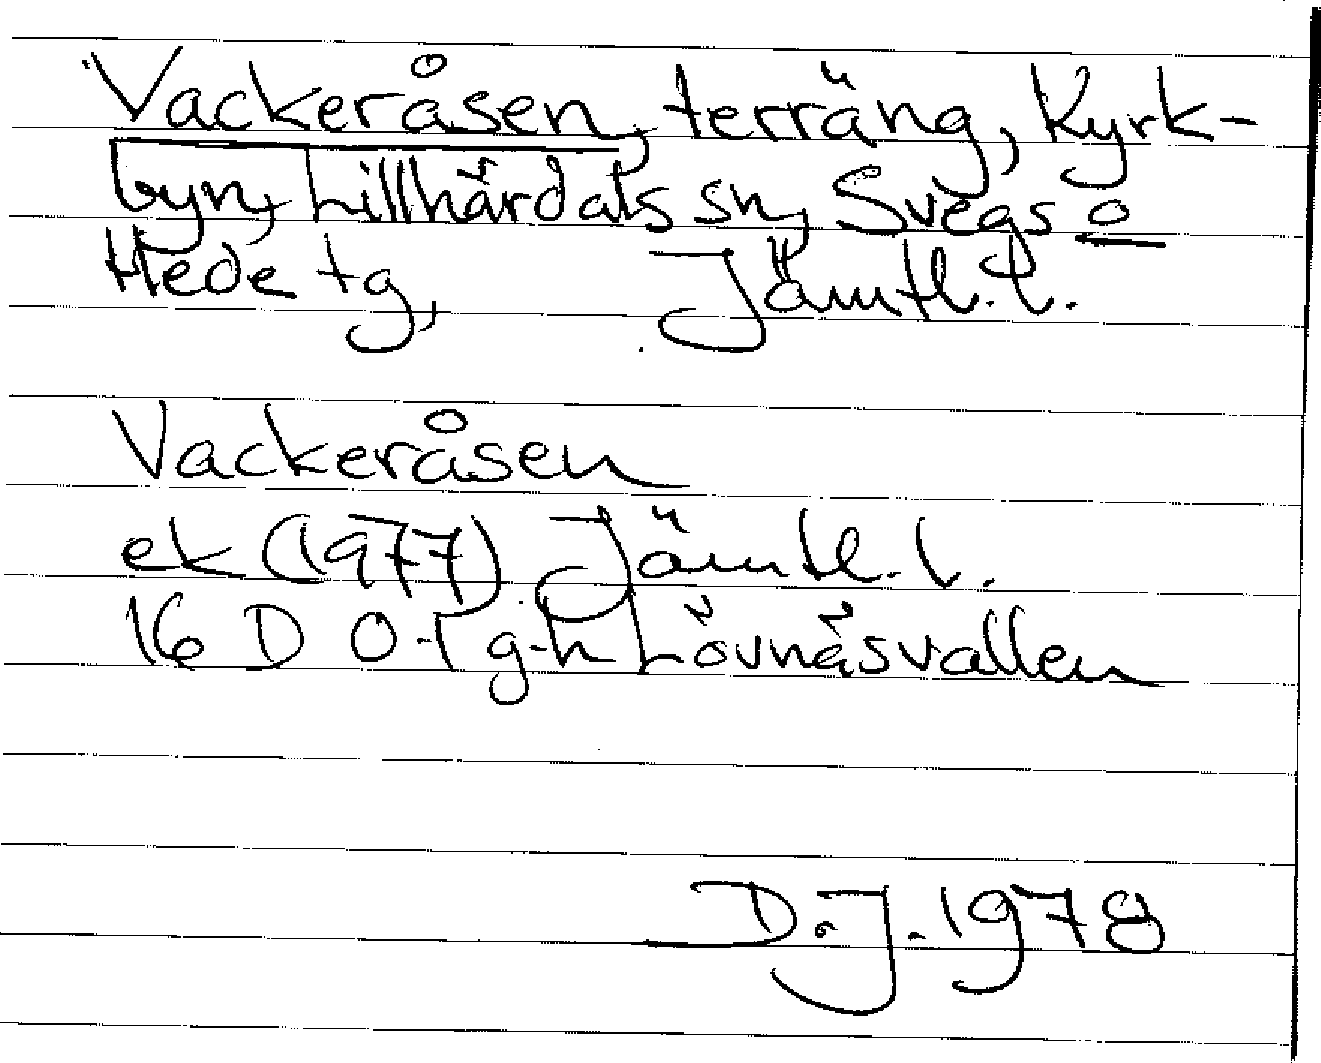 Vackeråsen, terräng, Kyrk-
byn, Lillhärdals sn, Svegs o
Hede tg, Jämtl. l.
Vackeråsen
ek (1977) Jämtl. l.
16 D 0-1 g-h Lövnäsvallen
D.J. 1978